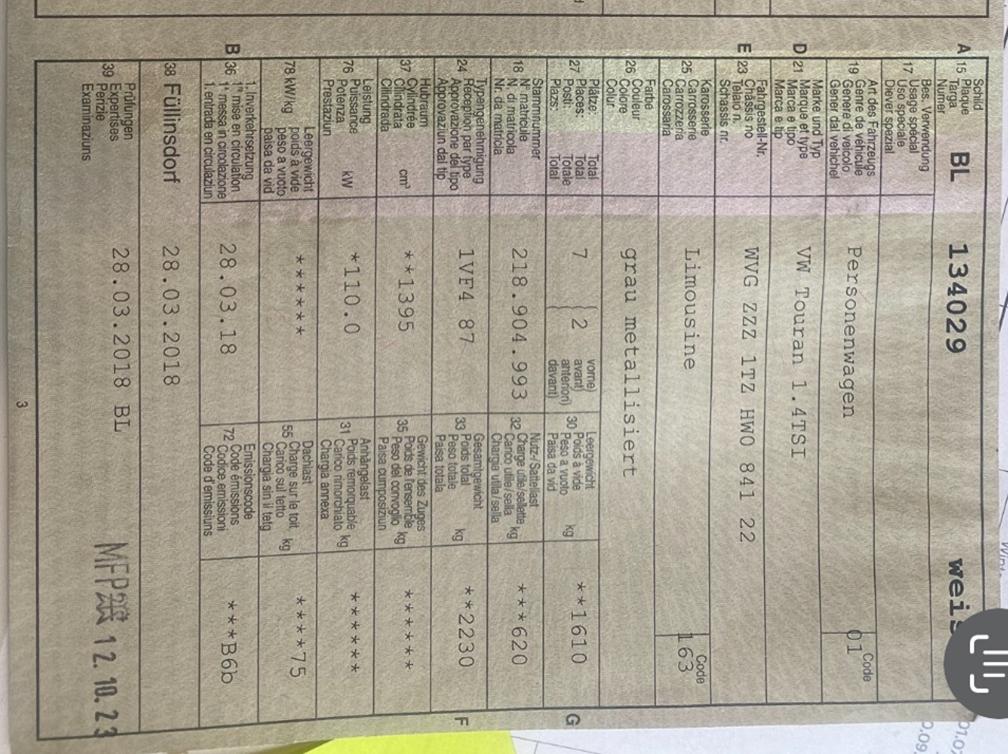 A 15 Schild
Plaque
Targa
Numer
BL 134029
17 Bes. Verwendung
Usage spécial
Uso speciale
Diever spezial
19 Art des Fahrzeugs
Genre de véhicule
Genere di veicolo
Gener dal vehichel
Personenwagen
Code
01
D 21 Marke und Typ
Marque et type
Marca e tipo
Marca e tip
VW Touran 1.4TSI
E 23 Fahrgestell-Nr.
Châssis no
Telaio n.
Schassis nr.
WVG ZZZ 1TZ HW0 841 22
25 Karosserie
Carrosserie
Carrozzeria
Carossaria
Limousine
Code
163
26 Farbe
Couleur
Colore
Colur
grau metallisiert
27 Plätze: Total
Places: Total
Posti: Totale
Plazs: Total
7
( 2
vorne)
avant)
anteriori)
davant)
30 Leergewicht
Poids à vide
Peso a vuoto
Paisa da vid
kg
**1610
G
18 Stammnummer
N° matricule
N. di matricola
Nr. da matricla
218.904.993
32 Nutz-/Sattellast
Charge utile/sellette
Carico utile/sella
Chargia utila/sella
kg
***620
24 Typengenehmigung
Réception par type
Approvazione del tipo
Approvaziun dal tip
1VF4 87
33 Gesamtgewicht
Poids total
Peso totale
Paisa totala
kg
**2230
F
37 Hubraum
Cylindrée
Cilindrata
Cilindrada
cm³
**1395
35 Gewicht des Zuges
Poids de l'ensemble
Peso del convoglio
Paisa cumposiziun
kg
******
76 Leistung
Puissance
Potenza
Prestaziun
kW
*110.0
31 Anhängelast
Poids remorquable
Carico rimorchiato
Chargia annexa
kg
******
78 kW/kg
Leergewicht
poids à vide
peso a vuoto
paisa da vid
******
55 Dachlast
Charge sur le toit
Carico sul tetto
Chargia sin il tetg
kg
****75
B 36 1. Inverkehrsetzung
1re mise en circulation
1a messa in circolazione
1. entrada en circulaziun
28.03.18
72 Emissionscode
Code émissions
Codice emissioni
Code d'emissiuns
***B6b
38 Füllinsdorf
28.03.2018
39 Prüfungen
Expertises
Perizie
Examinaziuns
28.03.2018 BL
MFP 12.10.23
3